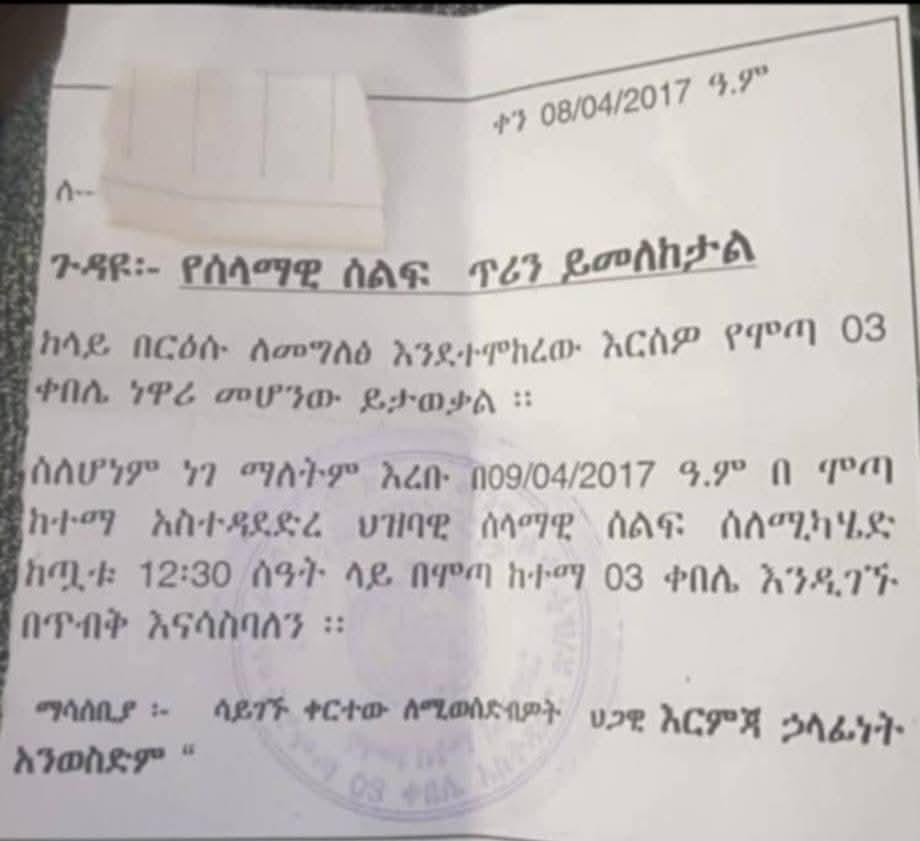 ቀን 08/04/2017 ዓ.ም
ለ--
ጉዳዩ፡- የሰላማዊ ሰልፍ ጥሪን ይመለከታል
ከላይ በርዕሱ ለመግለፅ እንደተሞከረው እርሰዎ የሞጣ 03
ቀበሌ ነዋሪ መሆንው ይታወቃል ፡፡
ስለሆነም ነገ ማለትም እረቡ በ09/04/2017 ዓ.ም በ ሞጣ
ከተማ አስተዳደድረ ህዝባዊ ሰላማዊ ሰልፍ ስለሚካሄድ
ከጧቱ 12፡30 ሰዓት ላይ በሞጣ ከተማ 03 ቀበሌ እንዲገኙ
በጥብቅ እናሳስባለን ፡፡
ማሳሰቢያ ፡- ሳይገኙ ቀርተው ለሚወሰድብዎት ህጋዊ እርምጃ ኃላፊነት
አንወስድም "
03 ቀበሌ